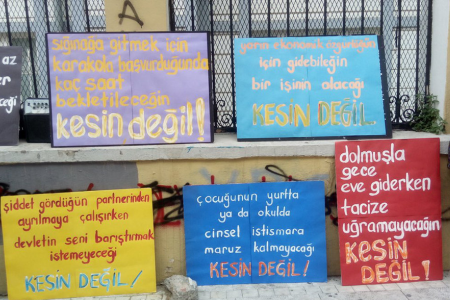 az
acağı
sığınağa gitmek için
karakola başvurduğunda
kaç saat
bekletileceğin
kesin değil!
yarın ekonomik özgürlüğün
için gidebileğin
bir işinin olacağı
KESİN DEĞİL.
şiddet gördüğün partnerinden
ayrılmaya çalışırken
devletin seni barıştırmak
istemeyeceği
KESİN DEĞİL!
çocuğunun yurtta
ya da okulda
cinsel istismara
maruz kalmayacağı
KESİN DEĞİL!
dolmuşla
gece
eve giderken
tacize
uğramayacağın
KESİN
DEĞİL!